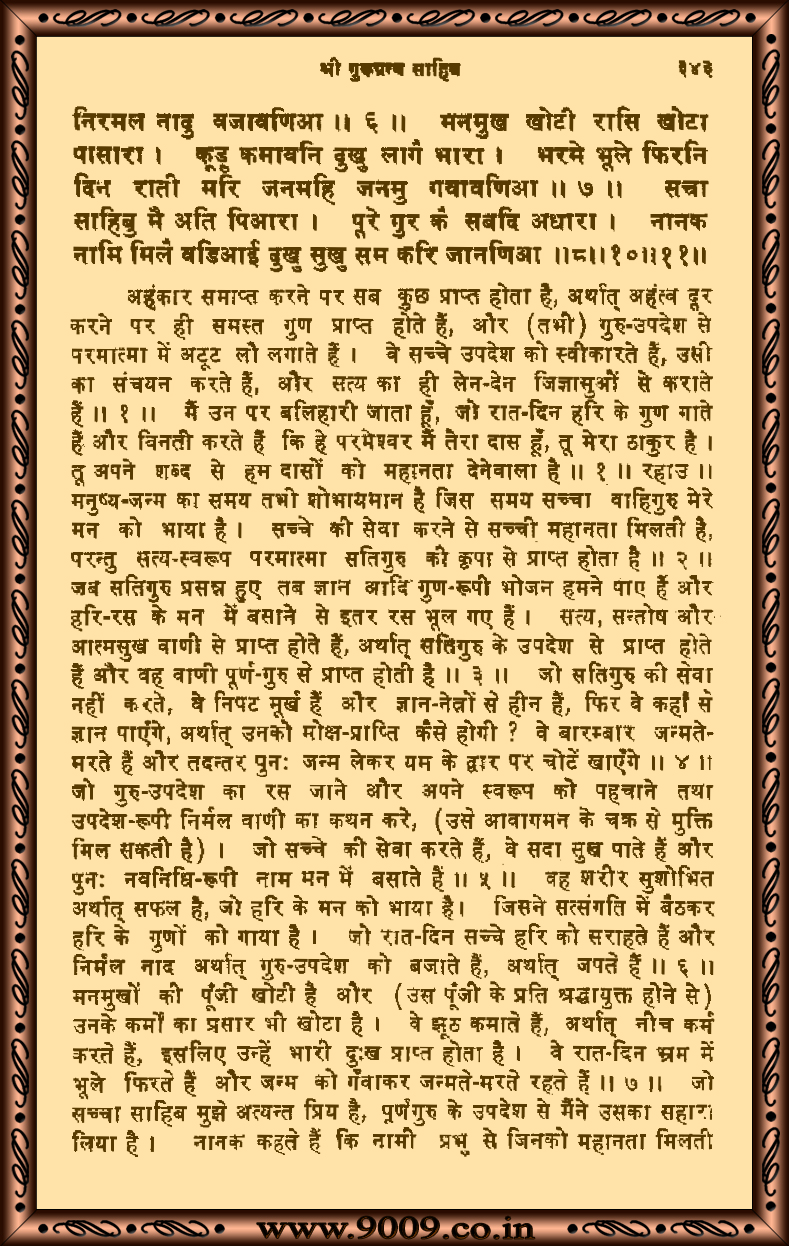 श्री गुरूग्रन्थ साहिब ३४३
निरमल नादु वजावणिआ ।। ६ ।। मनमुख खोटी रासि खोटा
पासारा । कूड़ु कमावनि दुखु लागै भारा । भरमे भूले फिरनि
दिन राती मरि जनमहि जनमु गवावणिआ ।। ७ ।। सचा
साहिबु मै अति पिआरा । पूरे गुर कै सबदि अधारा । नानक
नामि मिलै वडिआई दुखु सुखु सम करि जानणिआ ।।८।।१०।।११।।
अहंकार समाप्त करने पर सब कुछ प्राप्त होता है, अर्थात् अहंत्व दूर
करने पर ही समस्त गुण प्राप्त होते हैं, और (तभी) गुरु-उपदेश से
परमात्मा में अटूट लौ लगाते हैं । वे सच्चे उपदेश को स्वीकारते हैं, उसी
का संचयन करते हैं, और सत्य का ही लेन-देन जिज्ञासुओं से कराते
हैं ।। १ ।। मैं उन पर बलिहारी जाता हूँ, जो रात-दिन हरि के गुण गाते
हैं और विनती करते हैं कि हे परमेश्वर मैं तेरा दास हूँ, तू मेरा ठाकुर है ।
तू अपने शब्द से हम दासों को महानता देनेवाला है ।। १ ।। रहाउ ।।
मनुष्य-जन्म का समय तभी शोभायमान है जिस समय सच्चा वाहिगुरु मेरे
मन को भाया है । सच्चे की सेवा करने से सच्ची महानता मिलती है,
परन्तु सत्य-स्वरूप परमात्मा सतिगुरु की कृपा से प्राप्त होता है ।। २ ।।
जब सतिगुरु प्रसन्न हुए तब ज्ञान आदि गुण-रूपी भोजन हमने पाए हैं और
हरि-रस के मन में बसाने से इतर रस भूल गए हैं । सत्य, सन्तोष और
आत्मसुख वाणी से प्राप्त होते हैं, अर्थात् सतिगुरु के उपदेश से प्राप्त होते
हैं और वह वाणी पूर्ण-गुरु से प्राप्त होती है ।। ३ ।। जो सतिगुरु की सेवा
नहीं करते, वे निपट मूर्ख हैं और ज्ञान-नेत्रों से हीन हैं, फिर वे कहाँ से
ज्ञान पाएँगे, अर्थात् उनको मोक्ष-प्राप्ति कैसे होगी ? वे बारम्बार जन्मते-
मरते हैं और तदन्तर पुनः जन्म लेकर यम के द्वार पर चोटें खाएँगे ।। ४ ।।
जो गुरु-उपदेश का रस जाने और अपने स्वरूप को पहचाने तथा
उपदेश-रूपी निर्मल वाणी का कथन करे, (उसे आवागमन के चक्र से मुक्ति
मिल सकती है) । जो सच्चे की सेवा करते हैं, वे सदा सुख पाते हैं और
पुनः नवनिधि-रूपी नाम मन में बसाते हैं ।। ५ ।। वह शरीर सुशोभित
अर्थात् सफल है, जो हरि के मन को भाया है। जिसने सत्संगति में बैठकर
हरि के गुणों को गाया है । जो रात-दिन सच्चे हरि को सराहते हैं और
निर्मल नाद अर्थात् गुरु-उपदेश को बजाते हैं, अर्थात् जपते हैं ।। ६ ।।
मनमुखों की पूँजी खोटी है और (उस पूँजी के प्रति श्रद्धायुक्त होने से)
उनके कर्मों का प्रसार भी खोटा है । वे झूठ कमाते हैं, अर्थात् नीच कर्म
करते हैं, इसलिए उन्हें भारी दुःख प्राप्त होता है । वे रात-दिन भ्रम में
भूले फिरते हैं और जन्म को गँवाकर जन्मते-मरते रहते हैं ।। ७ ।। जो
सच्चा साहिब मुझे अत्यन्त प्रिय है, पूर्णगुरु के उपदेश से मैंने उसका सहारा
लिया है । नानक कहते हैं कि नामी प्रभु से जिनको महानता मिलती
www.9009.co.in